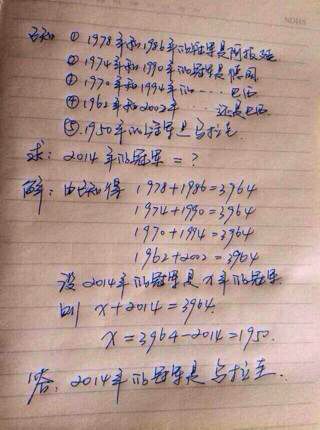 已知 ① 1978年和1986年的冠军是阿根廷
② 1974年和1990年的冠军是德国
③ 1970年和1994年的……巴西
④ 1962年和2002年 还是巴西
⑤ 1950年的冠军是乌拉圭
求: 2014年的冠军=?
解: 由已知得 1978+1986=3964
1974+1990=3964
1970+1994=3964
1962+2002=3964
设2014年的冠军是x年的冠军
则 x+2014=3964.
x=3964-2014=1950.
答: 2014年的冠军是乌拉圭.